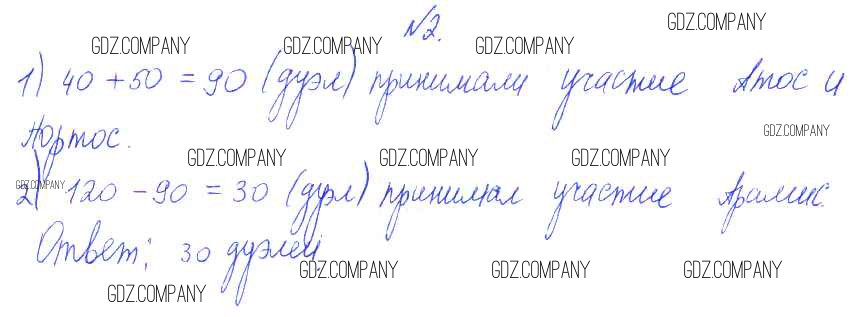 №2.
GDZ.COMPANY
GDZ.COMPANY GDZ.COMPANY GDZ.COMPANY
1) 40 + 50 = 90 (дуэл) принимали участие Атос и
Портос.
GDZ.COMPANY
GDZ.COMPANY GDZ.COMPANY GDZ.COMPANY
GDZ.COMPANY
2) 120 - 90 = 30 (дуэл) принимал участие Арамис.
Ответ: 30 дуэлей.
GDZ.COMPANY GDZ.COMPANY GDZ.COMPANY
GDZ.COMPANY